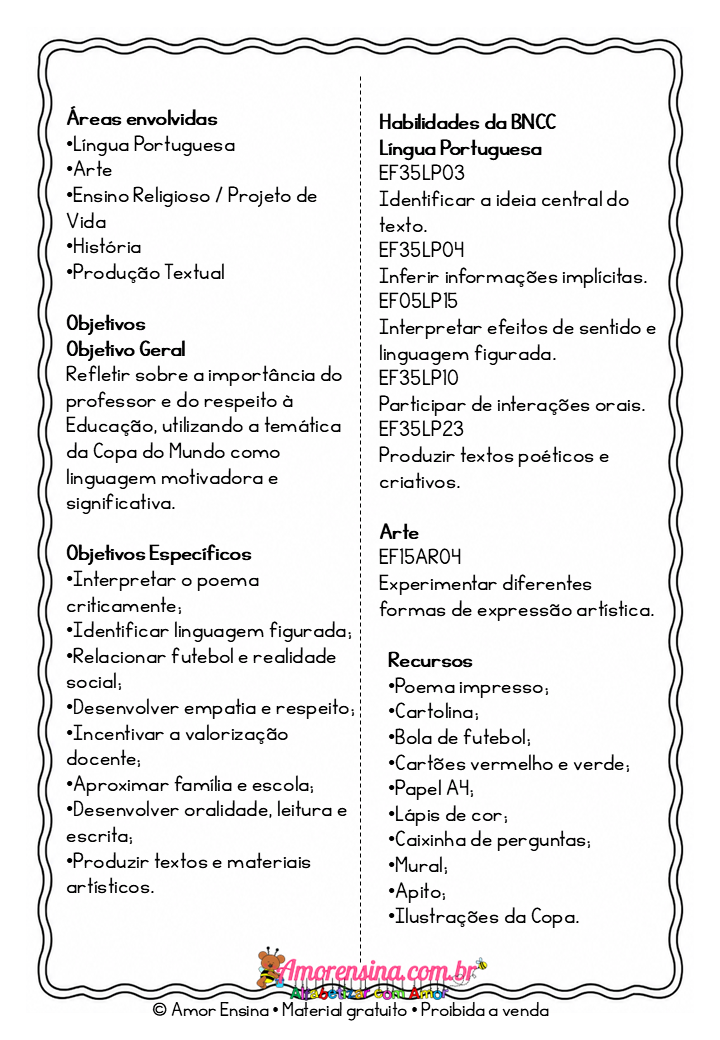 Áreas envolvidas
•Língua Portuguesa
•Arte
•Ensino Religioso / Projeto de
Vida
•História
•Produção Textual
Objetivos
Objetivo Geral
Refletir sobre a importância do
professor e do respeito à
Educação, utilizando a temática
da Copa do Mundo como
linguagem motivadora e
significativa.
Objetivos Específicos
•Interpretar o poema
criticamente;
•Identificar linguagem figurada;
•Relacionar futebol e realidade
social;
•Desenvolver empatia e respeito;
•Incentivar a valorização
docente;
•Aproximar família e escola;
•Desenvolver oralidade, leitura e
escrita;
•Produzir textos e materiais
artísticos.
Habilidades da BNCC
Língua Portuguesa
EF35LP03
Identificar a ideia central do
texto.
EF35LP04
Inferir informações implícitas.
EF05LP15
Interpretar efeitos de sentido e
linguagem figurada.
EF35LP10
Participar de interações orais.
EF35LP23
Produzir textos poéticos e
criativos.
Arte
EF15AR04
Experimentar diferentes
formas de expressão artística.
Recursos
•Poema impresso;
•Cartolina;
•Bola de futebol;
•Cartões vermelho e verde;
•Papel A4;
•Lápis de cor;
•Caixinha de perguntas;
•Mural;
•Apito;
•Ilustrações da Copa.
Amorensina.com.br
Alfabetizar com Amor
© Amor Ensina • Material gratuito • Proibida a venda